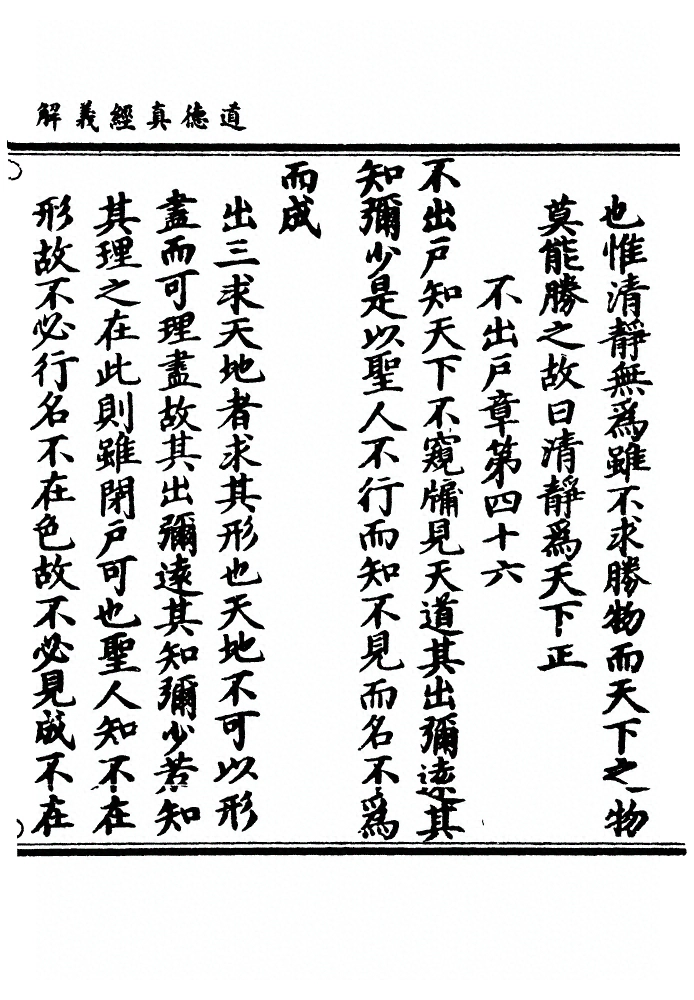 道德真經義解
也惟清靜無為雖不求勝物而天下之物
莫能勝之故曰清靜為天下正
不出戶章第四十六
不出戶知天下不窺牖見天道其出彌遠其
知彌少是以聖人不行而知不見而名不為
而成
出三求天地者求其形也天地不可以形
盡而可理盡故其出彌遠其知彌少若知
其理之在此則雖閉戶可也聖人知不在
形故不必行名不在色故不必見成不在